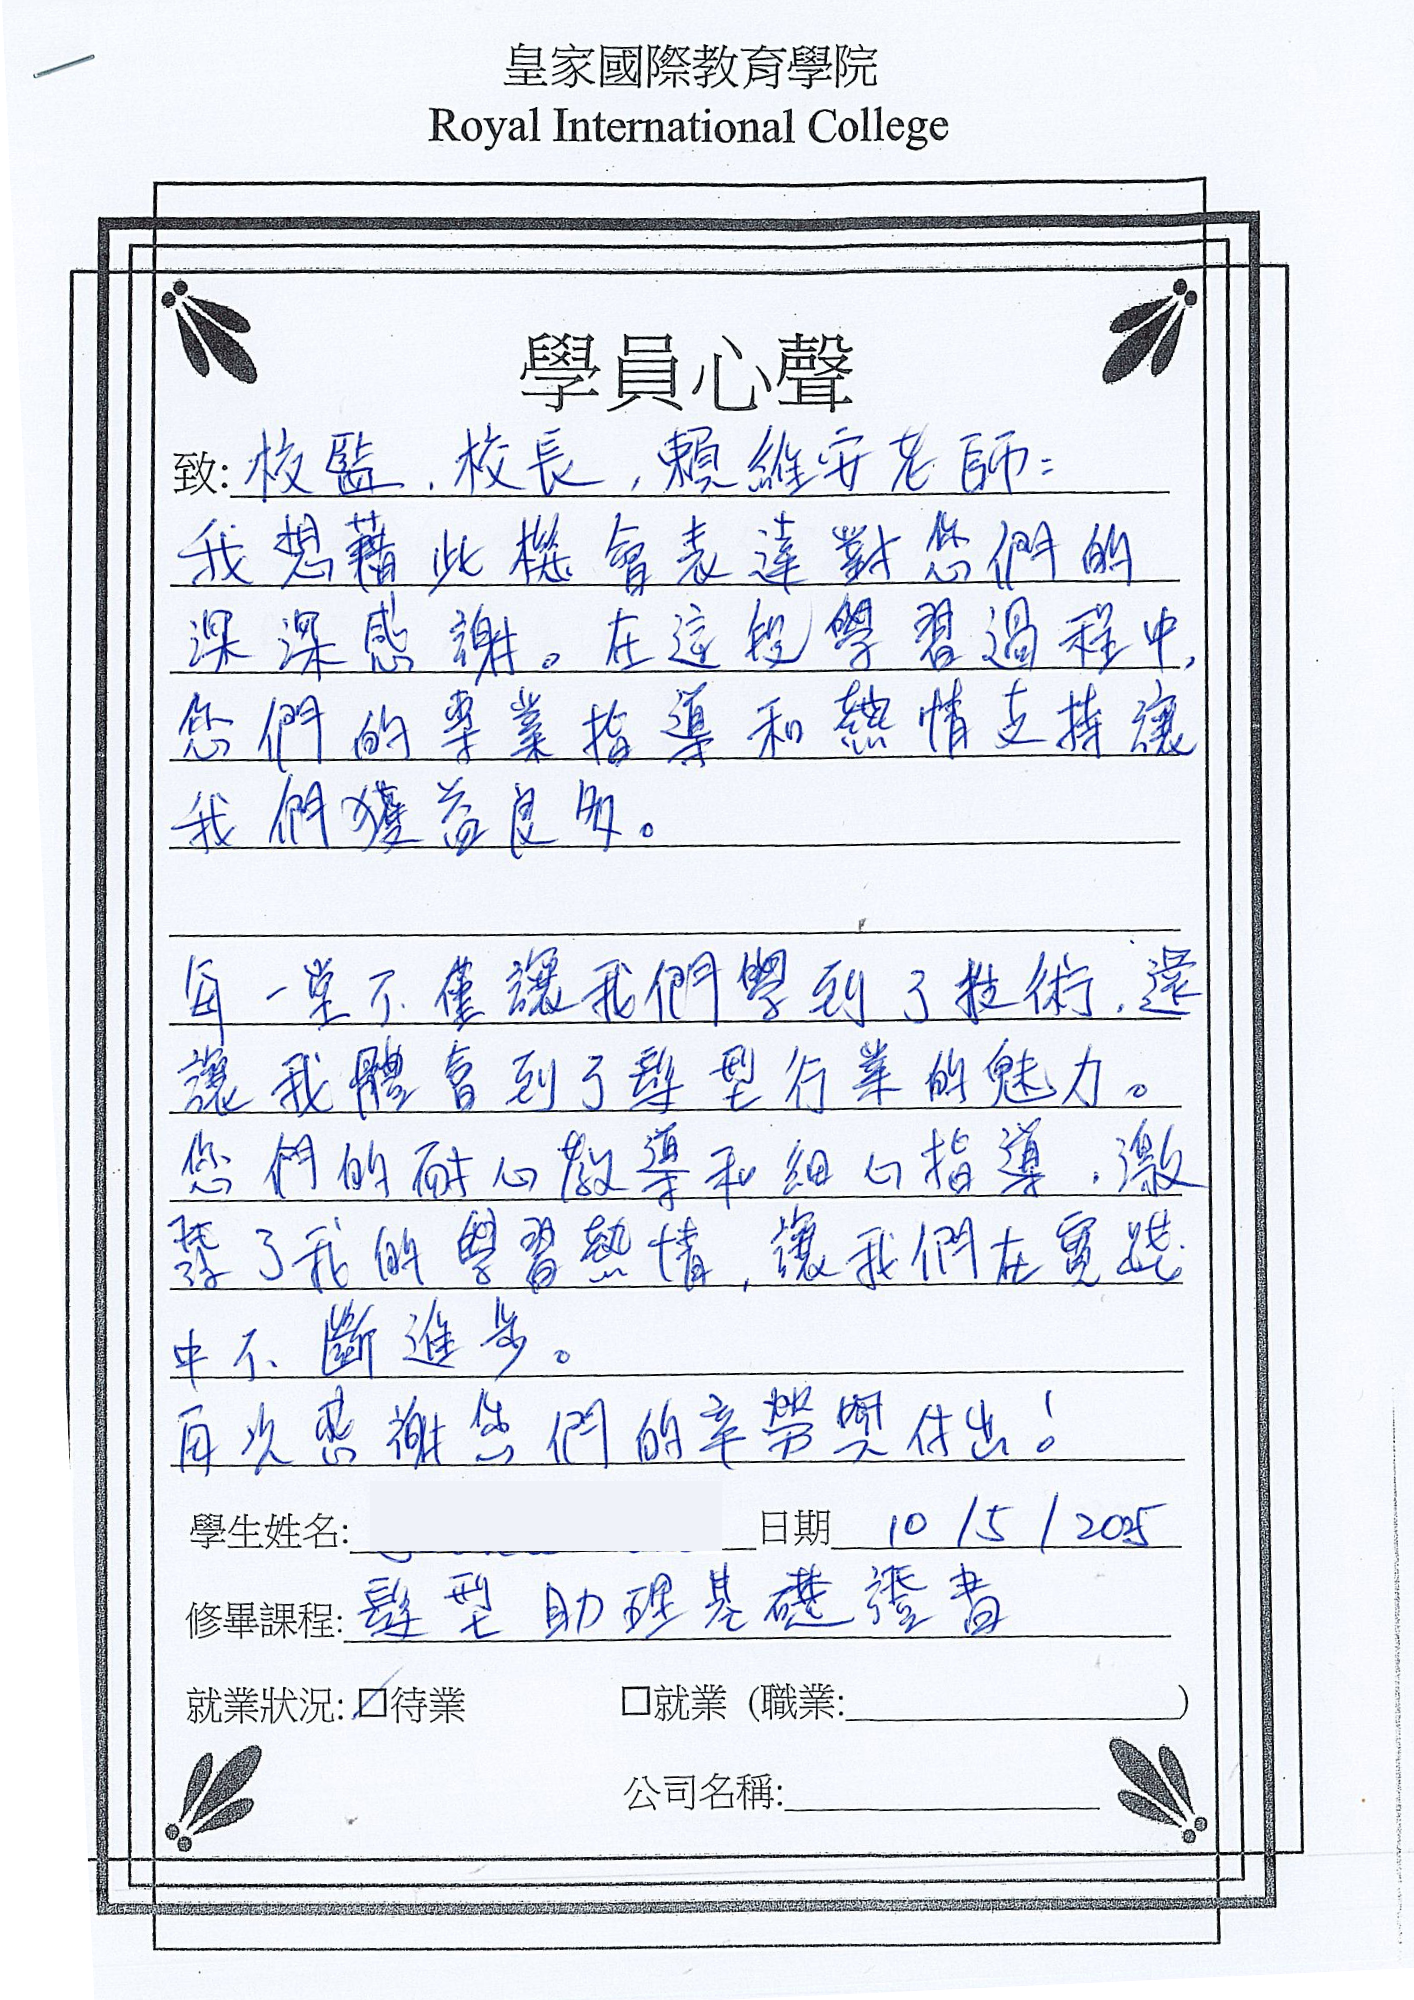 皇家國際教育學院
Royal International College
學員心聲
致: 校監, 校長, 賴維安老師:
我想藉此機會表達對您們的
深深感謝。在這段學習過程中,
您們的專業指導和熱情支持讓
我們獲益良多。
每一堂不僅讓我們學到了技術,還
讓我體會到了髮型行業的魅力。
您們的耐心教導和細心指導,激
發了我的學習熱情,讓我們在實踐
中不斷進步。
再次感謝您們的辛勞與付出!
學生姓名: 日期 10/5/2025
修畢課程: 髮型助理基礎證書
就業狀況: ☑待業 □就業 (職業: )
公司名稱: